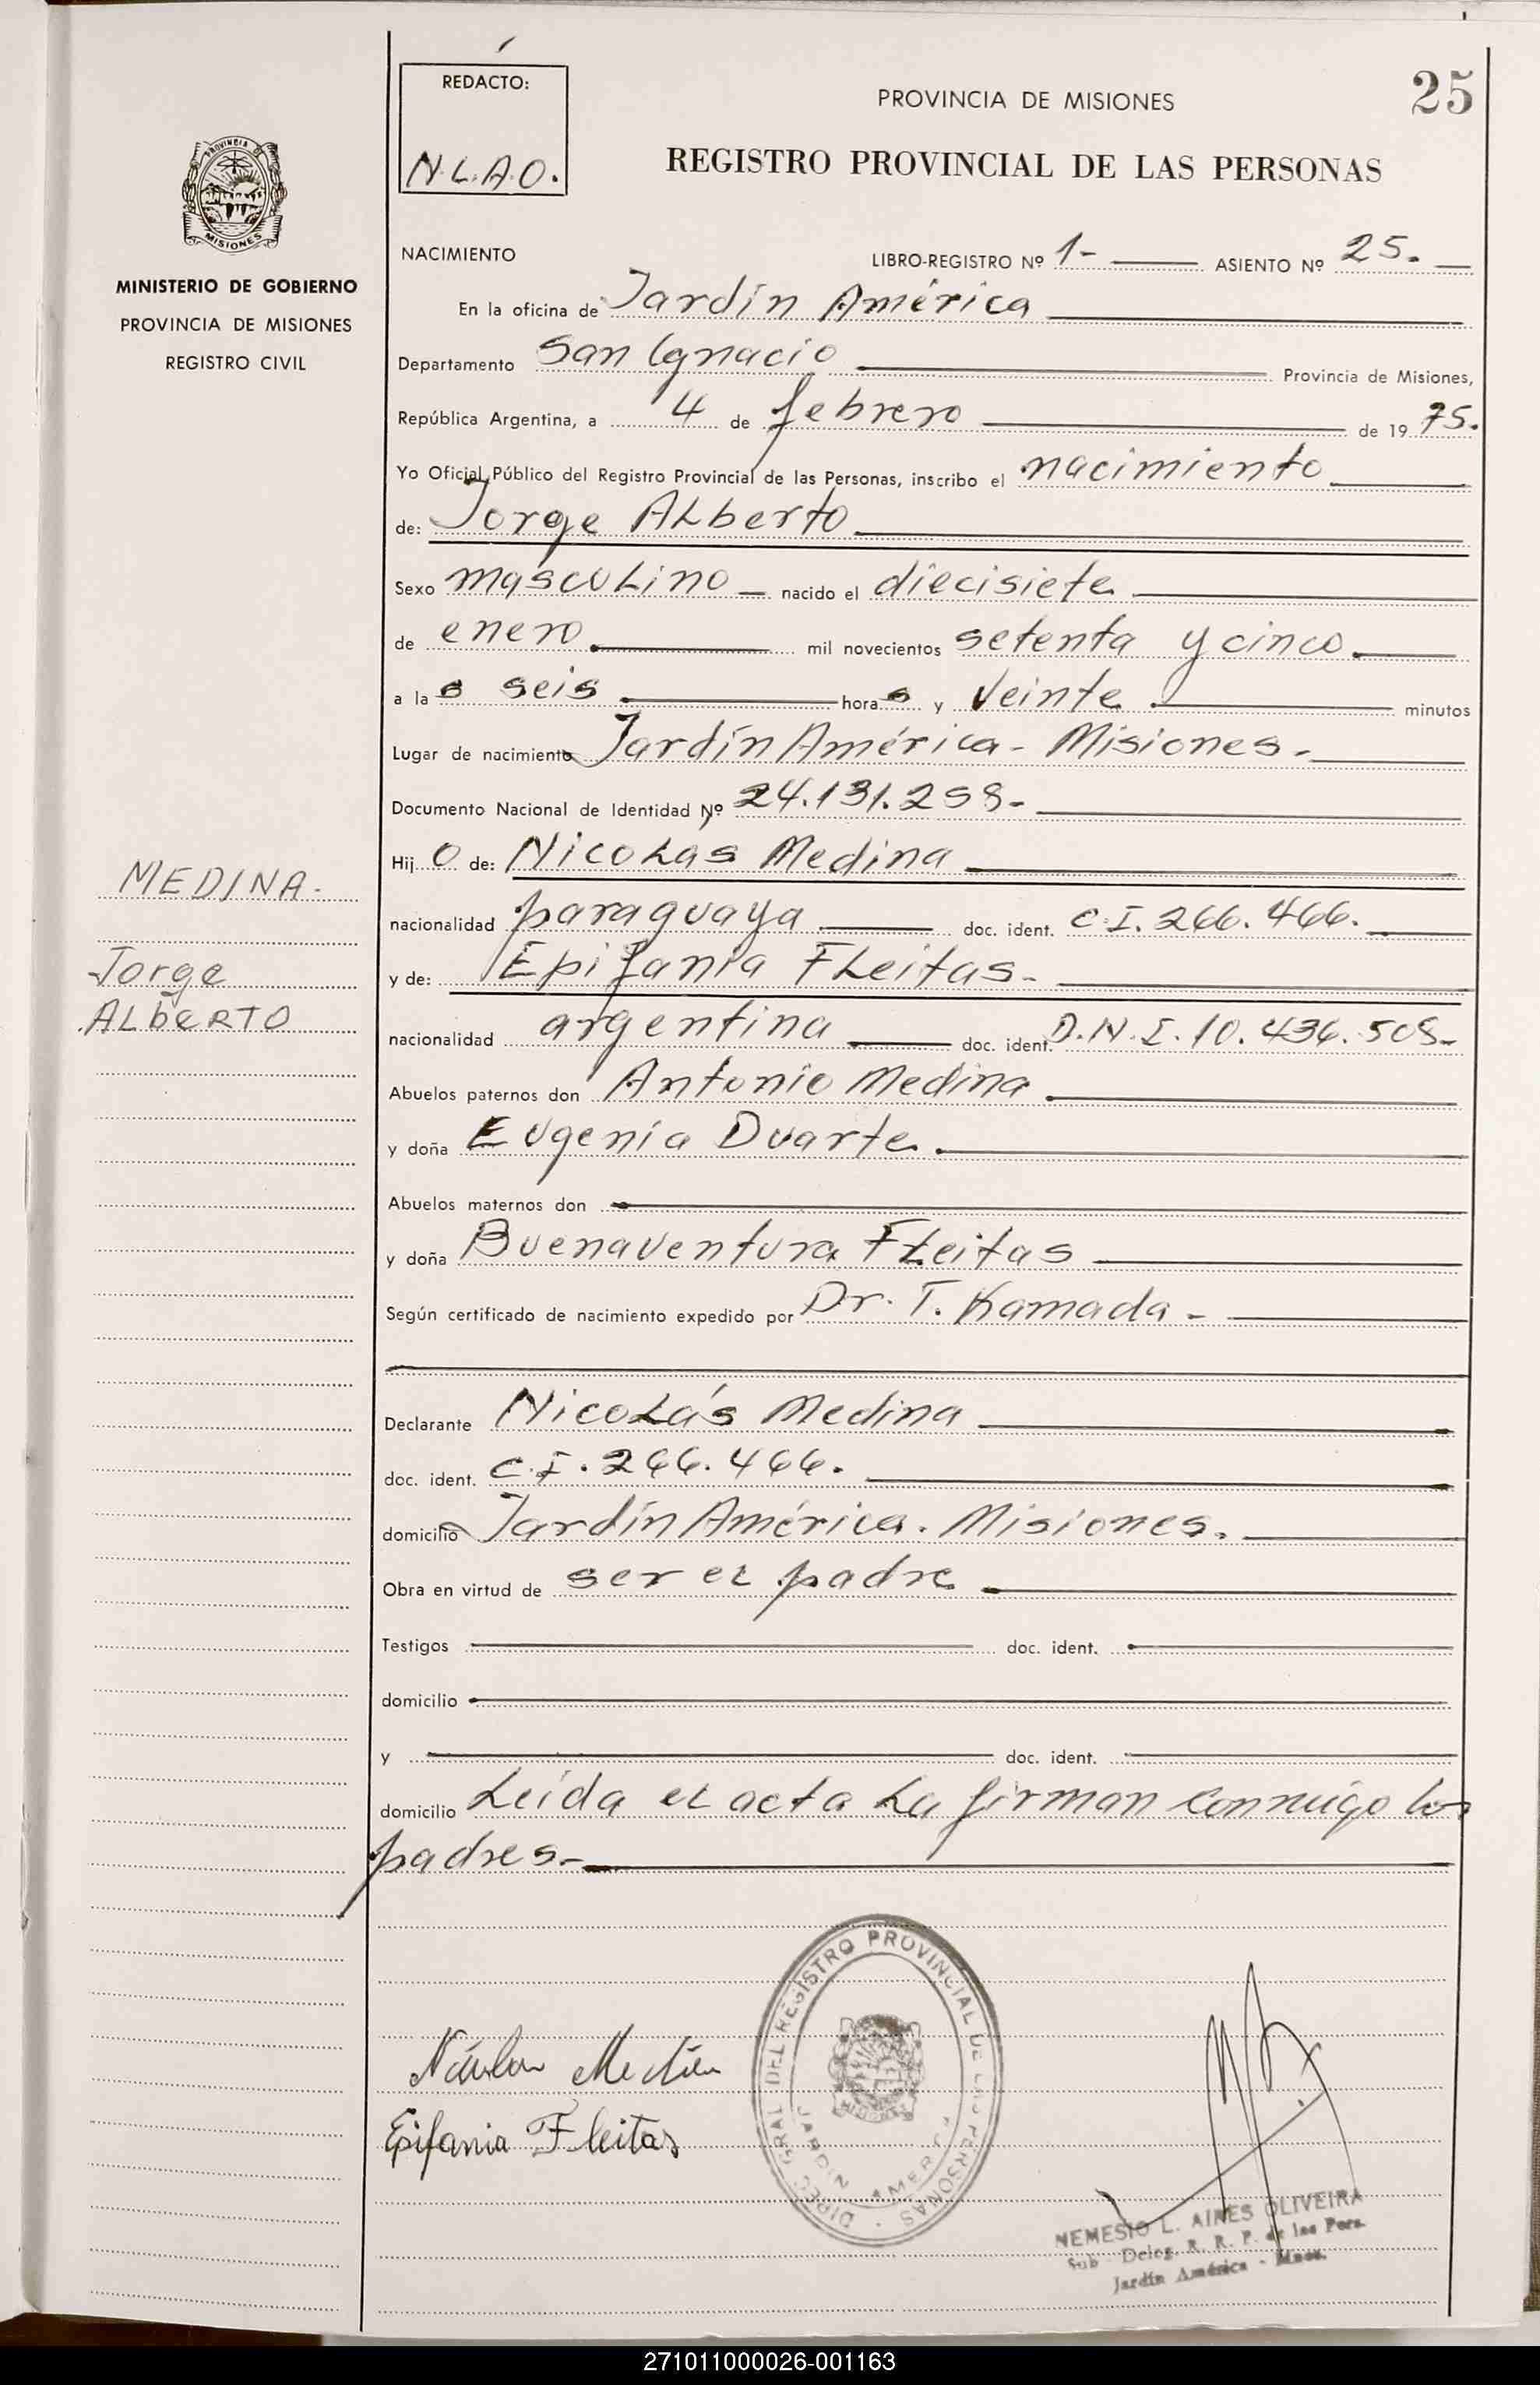 REDACTO:
N.L.A.O.
PROVINCIA DE MISIONES
25
REGISTRO PROVINCIAL DE LAS PERSONAS
PROVINCIA DE
MISIONES
MINISTERIO DE GOBIERNO
PROVINCIA DE MISIONES
REGISTRO CIVIL
NACIMIENTO LIBRO-REGISTRO Nº 1- ASIENTO Nº 25.
En la oficina de Jardín América
Departamento San Ignacio Provincia de Misiones,
República Argentina, a 4 de febrero de 19 75.
Yo Oficial Público del Registro Provincial de las Personas, inscribo el nacimiento
de: Jorge Alberto
Sexo masculino nacido el diecisiete
de enero. mil novecientos setenta y cinco.
a la s seis hora s y veinte minutos
Lugar de nacimiento Jardín América - Misiones.
Documento Nacional de Identidad Nº 24.131.298-
Hij o de: Nicolas Medina
nacionalidad paraguaya doc. ident. C.I. 266.466.
y de: Epifania Fleitas-
nacionalidad argentina doc. ident. D.N.I. 10.436.508-
Abuelos paternos don Antonio Medina
y doña Eugenia Duarte.
Abuelos maternos don
y doña Buenaventura Fleitas
Según certificado de nacimiento expedido por Dr. T. Kamada -
Declarante Nicolás Medina
doc. ident. C.I. 266.466.
domicilio Jardín América. Misiones.
Obra en virtud de ser el padre
Testigos doc. ident.
domicilio
y doc. ident.
domicilio Leída el acta la firman conmigo los
padres.-
MEDINA-
Jorge
ALbERTO
Epifania Fleitas
DIREC. GRAL DEL REGISTRO PROVINCIAL DE LAS PERSONAS
JARDIN AMERICA
MISIONES
NEMESIO L. AIRES OLIVEIRA
Sub Deleg. R. R. P. de las Pers.
Jardín América - Mnes.
271011000026-001163